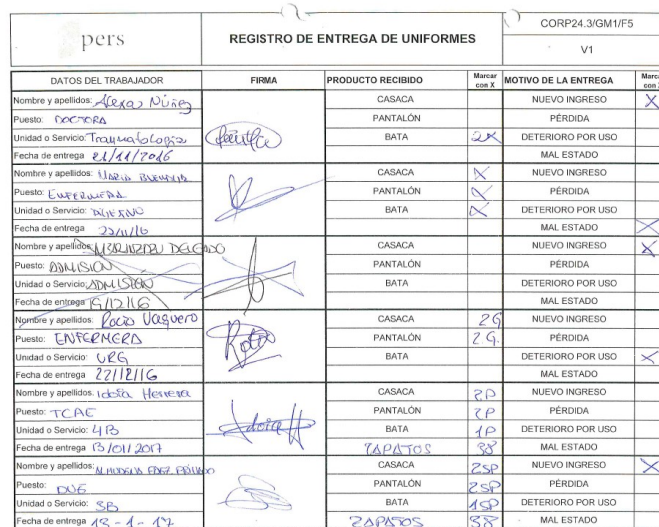 pers
REGISTRO DE ENTREGA DE UNIFORMES
CORP24.3/GM1/F5
V1
DATOS DEL TRABAJADOR FIRMA PRODUCTO RECIBIDO Marcar con X MOTIVO DE LA ENTREGA Marca con
Nombre y apellidos: Núñez CASACA NUEVO INGRESO X
Puesto: DOCTORA PANTALÓN PÉRDIDA
Unidad o Servicio: Traumatología BATA 2X DETERIORO POR USO
Fecha de entrega 21/11/2016 MAL ESTADO
Nombre y apellidos: MARIA CASACA X NUEVO INGRESO
Puesto: ENFERMERA PANTALÓN X PÉRDIDA
Unidad o Servicio: BATA X DETERIORO POR USO
Fecha de entrega 23/11/16 MAL ESTADO X
Nombre y apellidos: DELGADO CASACA NUEVO INGRESO X
Puesto: ADMISION PANTALÓN PÉRDIDA
Unidad o Servicio: ADMISION BATA DETERIORO POR USO
Fecha de entrega 19/12/16 MAL ESTADO
Nombre y apellidos: Rocio Vaquero CASACA 2G NUEVO INGRESO
Puesto: ENFERMERA PANTALÓN 2G. PÉRDIDA
Unidad o Servicio: URG BATA DETERIORO POR USO X
Fecha de entrega 22/12/16 MAL ESTADO
Nombre y apellidos: Idoia Herrera CASACA 2P NUEVO INGRESO
Puesto: TCAE Idoia H PANTALÓN 2P PÉRDIDA
Unidad o Servicio: 4B BATA 1P DETERIORO POR USO
Fecha de entrega 13/01/2017 ZAPATOS 38 MAL ESTADO
Nombre y apellidos: ALMUDENA FDEZ CASACA 2SP NUEVO INGRESO X
Puesto: DUE PANTALÓN 2SP PÉRDIDA
Unidad o Servicio: 3B BATA 1SP DETERIORO POR USO
Fecha de entrega 13-1-17 ZAPATOS 38 MAL ESTADO